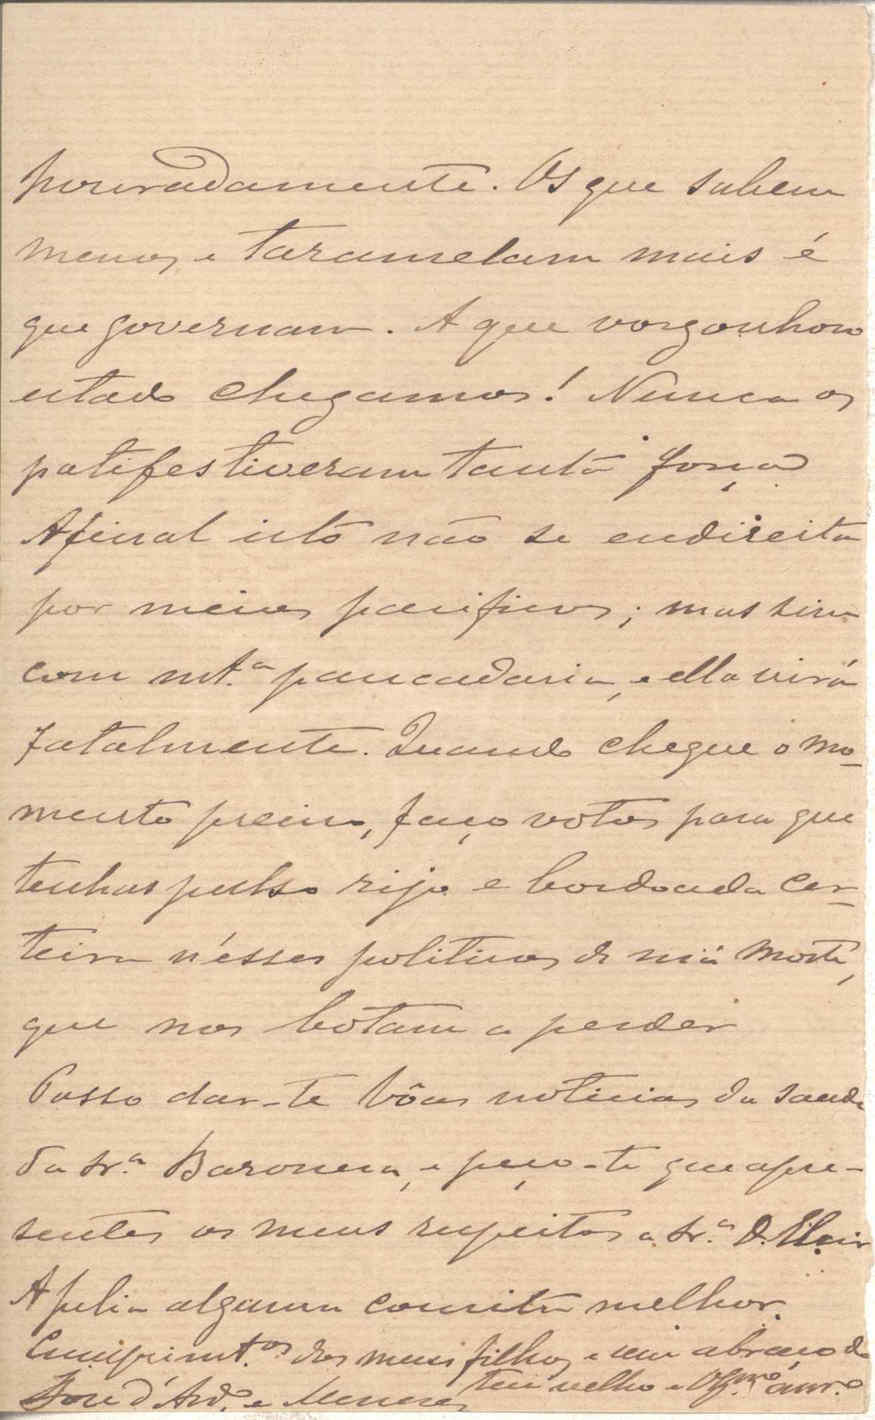 pouradamente. Os que sabem
menos e taramelam mais é
que governam. A que vergonhoso
estado chegamos! Nunca os
patifes tiveram tanta força
Afinal isto não se endireita
por meios pacificos; mas sim
com mt.ª pancadaria, e ella virá
fatalmente. Quando chegue o mo-
mento preciso, faço votos para que
tenhas pulso rijo e bordoada cer-
teira n'esses politicos de má morte,
que nos botam a perder
Posso dar-te bôas noticias da saude
da Sr.ª Baroneza, e peço-te que apre-
sentes os meus respeitos a Sr.ª D.
A Julia alguma cousita melhor.
Cumprimt.os dos meus filhos e um abraço do
teu velho e am.o
José d'Az.do e Menezes